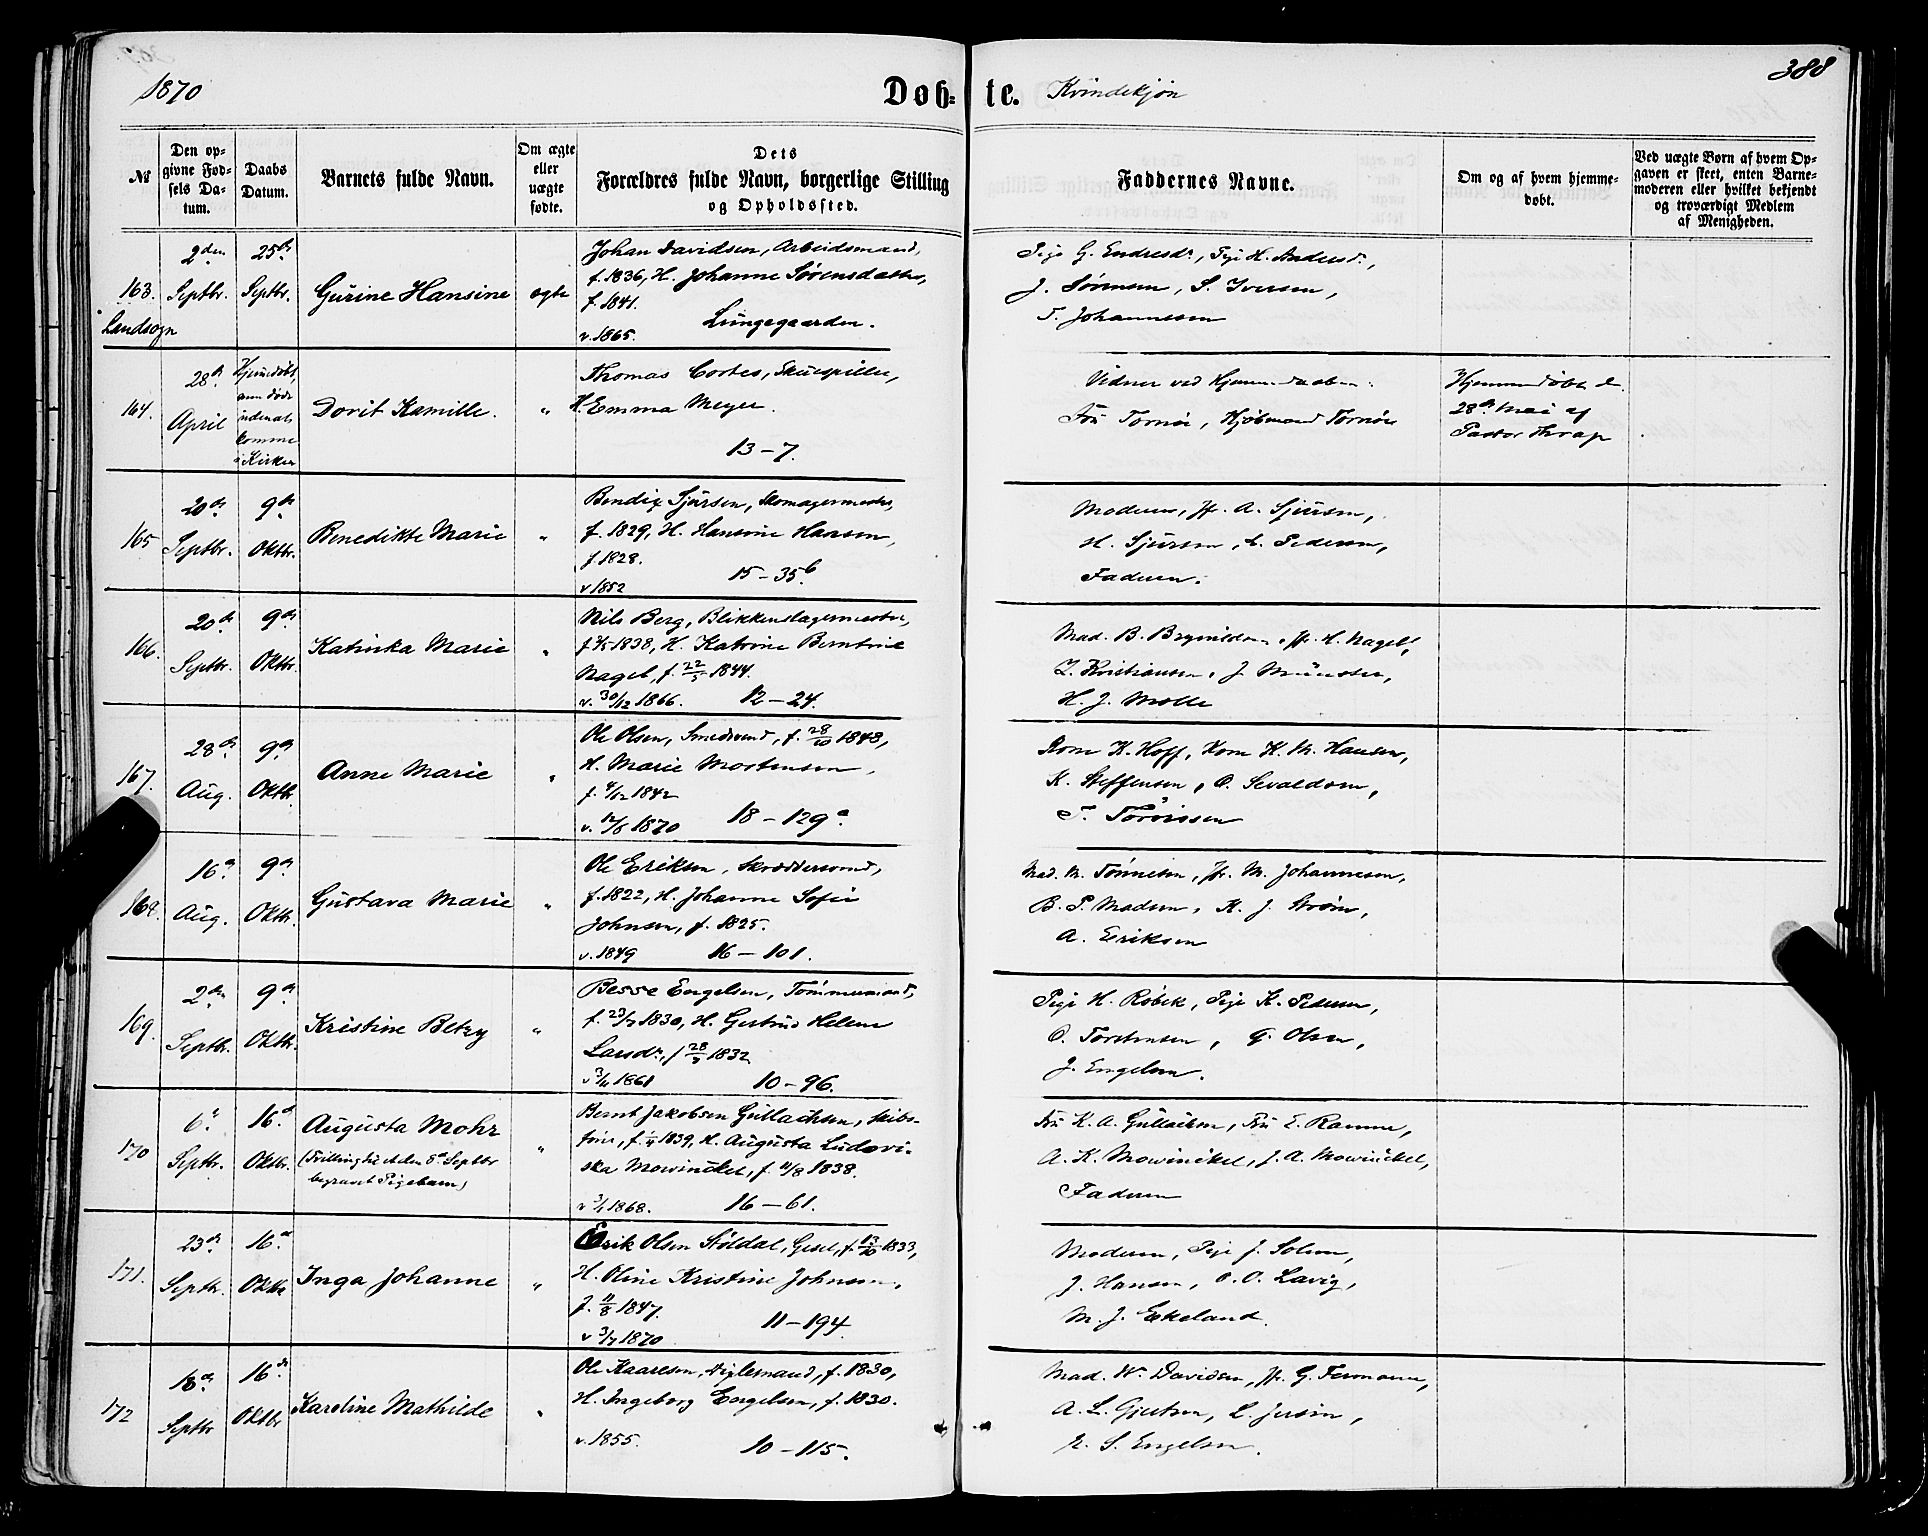 388
1870
Døb- te. Kvindekjøn
№
Den op-
givne Fød-
sels Da-
tum.
Daabs
Datum.
Barnets fulde Navn.
Om ægte
eller
uægte
fødte.
Dets
Forældres fulde Navn, borgerlige Stilling
og Opholdssted.
Faddernes Navne.
Om og af hvem hjemme-
døbt.
Ved uægte Børn af hvem Op-
gaven er skeet, enten Barne-
moderen eller hvilket bekjendt
og troværdigt Medlem
af Menigheden.
163.
Landsogn
2den
Septbr.
25de
Septbr.
Gurine Hansine
ægte
Johan Davidsen, Arbeidsmand,
f. 1836, H. Johanne Sørensdatter,
f. 1841.
v. 1865. Lungegaarden.
Pige G. Endresdr, Pige H. Andersdr,
J. Sørensen, S. Iversen,
T. Johannesen
164.
28de
April
Hjemmedøbt,
men døde
uden at
komme
i Kirken
Dorit Kamille.
"
Thomas Cortes, Skuespiller,
H. Emma Meyer.
13-7.
Vidner ved Hjemmedaaben:
Fru Tornøe, Kjøbmand Tornøe
Hjemmedøbt d.
28de Mai af
Pastor Thrap
165
20de
Septbr.
9de
Oktbr.
Benedikte Marie
"
Bendix Sjursen, Skomagermester,
f. 1829, H. Hansine Hansen,
f. 1828.
v 1852 15-35b
Moderen, Jfr. A. Sjursen,
H. Sjursen, L. Pedersen,
Faderen.
166.
20de
Septbr.
9de
Oktbr.
Katinka Marie
"
Nils Berg, Blikkenslagermester,
1838, H. Katrine Berntine
Nagel, f. 22/5 1844.
v. 30/12 1866. 12-24.
Mad. B. Brynildsen, Jfr. H. Nagel,
L. Kristiansen, J. Münster,
H. J. Molle
167.
28de
Aug.
9de
Oktbr.
Anne Marie
"
Ole Olsen, Smedsvend, f. 28/10 1848,
H. Marie Mortensen,
f. 4/12 1842
v. 12/6 1870 18-129a
Kone K. Hoff, Kone K. M. Hansen,
K. Steffensen, O. Sevaldsen,
T.
168.
16de
Aug.
9de
Oktbr.
Gustava Marie
"
Ole Eriksen, Skræddersvend,
f. 1822, H. Johanne Sofie
Johnsen, f. 1825.
v. 1849 16-101.
Mad. M. Tønnesen, Jfr. M. Johannesen,
B. P. Madsen, K. J. Strøm,
A. Eriksen
169.
2den
Septbr.
9de
Oktbr.
Kristine Betzy
"
Besse Engelsen, Tømmermand,
f. 23/7 1830, H. Gertrud Helene
Larsdr, f 28/3 1832
v 3/11 1861 10-96.
Pige H. Røbek, Pige K. Pedersen,
O. Torstensen, G. Olsen,
J. Engelsen.
170
6te
Septbr.
16de
Oktbr.
Augusta Mohr
(Tvilling til et den 8de Septbr
begravet Pigebarn)
"
Bernt Jakobsen Gullachsen, Skibs-
fører, f. 1/4 1839, H. Augusta Ludovi-
ska Mowinckel, f. 11/8 1838.
v 3/1 1868. 16-61.
Fru K. A. Gullachsen, Fru E. Ramm,
A. K. Mowinckel, J. A. Mowinckel,
Faderen
171.
23de
Septbr.
16de
Oktbr
Inga Johanne
"
Erik Olsen Støldal, Gesel, f. 13/10 1833,
H. Oline Kristine Johnsen,
f. 11/8 1847.
v 3/7 1870 11-194.
Moderen, Pige J. Solem,
J. Hansen, O. O. Lavig,
M. J. Ekeland.
172
18de
Septbr
16de
Oktbr
Karoline Mathilde
"
Ole Kaaresen, f. 1830,
H. Ingeborg Engelsen, f. 1830.
v. 1855. 10-115.
Mad. W. Davidsen, Jfr. G. Fermann,
A. L. Gjertsen, L. Jersin,
S. Engelsen.